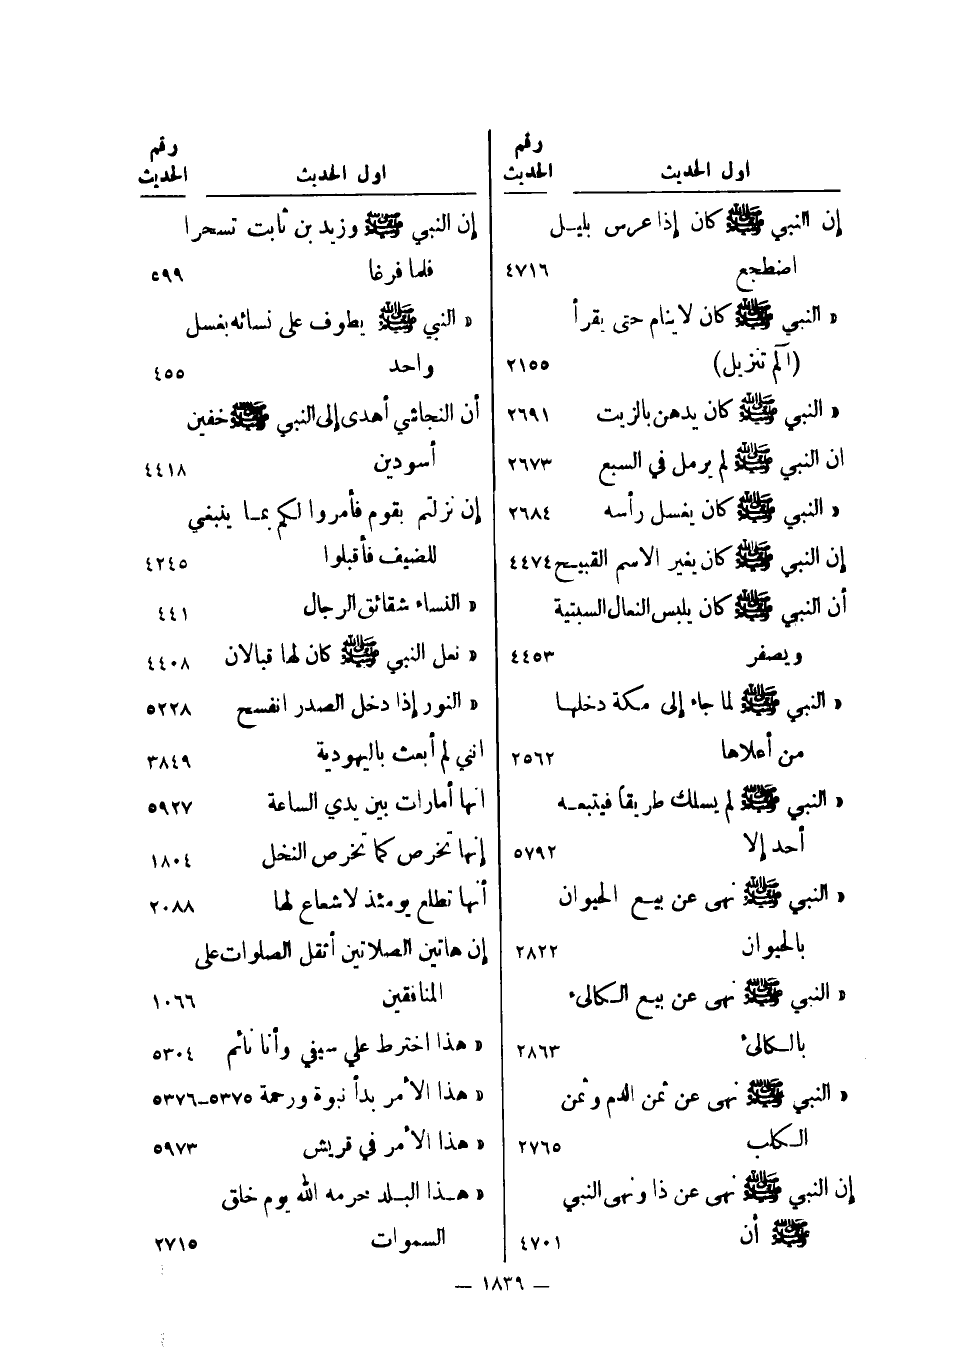 اول الحديث
رقم
الحديث
إن النبي ﷺ كان إذا عرس بليـل
اضطجع ٤٧١٦
« النبي ﷺ كان لا ينام حتى يقرأ
(آلم تنزيل) ٢١٥٥
« النبي ﷺ كان يدهن بالزيت ٢٦٩١
ان النبي ﷺ لم يرمل في السبع ٢٦٧٣
« النبي ﷺ كان يغسل رأسه ٢٦٨٤
إن النبي ﷺ كان يغير الاسم القبيـح ٤٤٧٤
أن النبي ﷺ كان يلبس النعال السبتية
ويصفر ٤٤٥٣
« النبي ﷺ لما جاء إلى مكة دخلها
من أعلاها ٢٥٦٢
« النبي ﷺ لم يسلك طريقاً فيتبعـه
أحد إلا ٥٧٩٢
« النبي ﷺ نهى عن بيـع الحيوان
بالحيوان ٢٨٢٢
« النبي ﷺ نهى عن بيع الـكالىء
بالـكالىء ٢٨٦٣
« النبي ﷺ نهى عن ثمن الدم وثمن
الـكلب ٢٧٦٥
إن النبي ﷺ نهى عن ذا ونهى النبي
ﷺ أن ٤٧٠١
اول الحديث
رقم
الحديث
إن النبي ﷺ وزيد بن ثابت تسحرا
فلما فرغا ٥٩٩
« النبي ﷺ يطوف على نسائه بغسل
واحد ٤٥٥
أن النجاشي أهدى إلى النبي ﷺ خفين
أسودين ٤٤١٨
إن نزلتم بقوم فأمروا لكم بمـا ينبغي
للضيف فأقبلوا ٤٢٤٥
« النساء شقائق الرجال ٤٤١
« نعل النبي ﷺ كان لها قبالان ٤٤٠٨
« النور إذا دخل الصدر انفسح ٥٢٢٨
انني لم أبعث باليهودية ٣٨٤٩
انها أمارات بين يدي الساعة ٥٩٢٧
إنها تخرص كما تخرص النخل ١٨٠٤
أنها تطلع يومئذ لا شعاع لها ٢٠٨٨
إن هاتين الصلاتين أثقل الصلوات على
المنافقين ١٠٦٦
« هذا اخترط علي سيفي وأنا نائم ٥٣٠٤
« هذا الأمر بدأ نبوة ورحمة ٥٣٧٥ــ٥٣٧٦
« هذا الأمر في قريش ٥٩٧٣
« هـذا البـلد حرمه الله يوم خلق
السموات ٢٧١٥
— ١٨٣٩ —